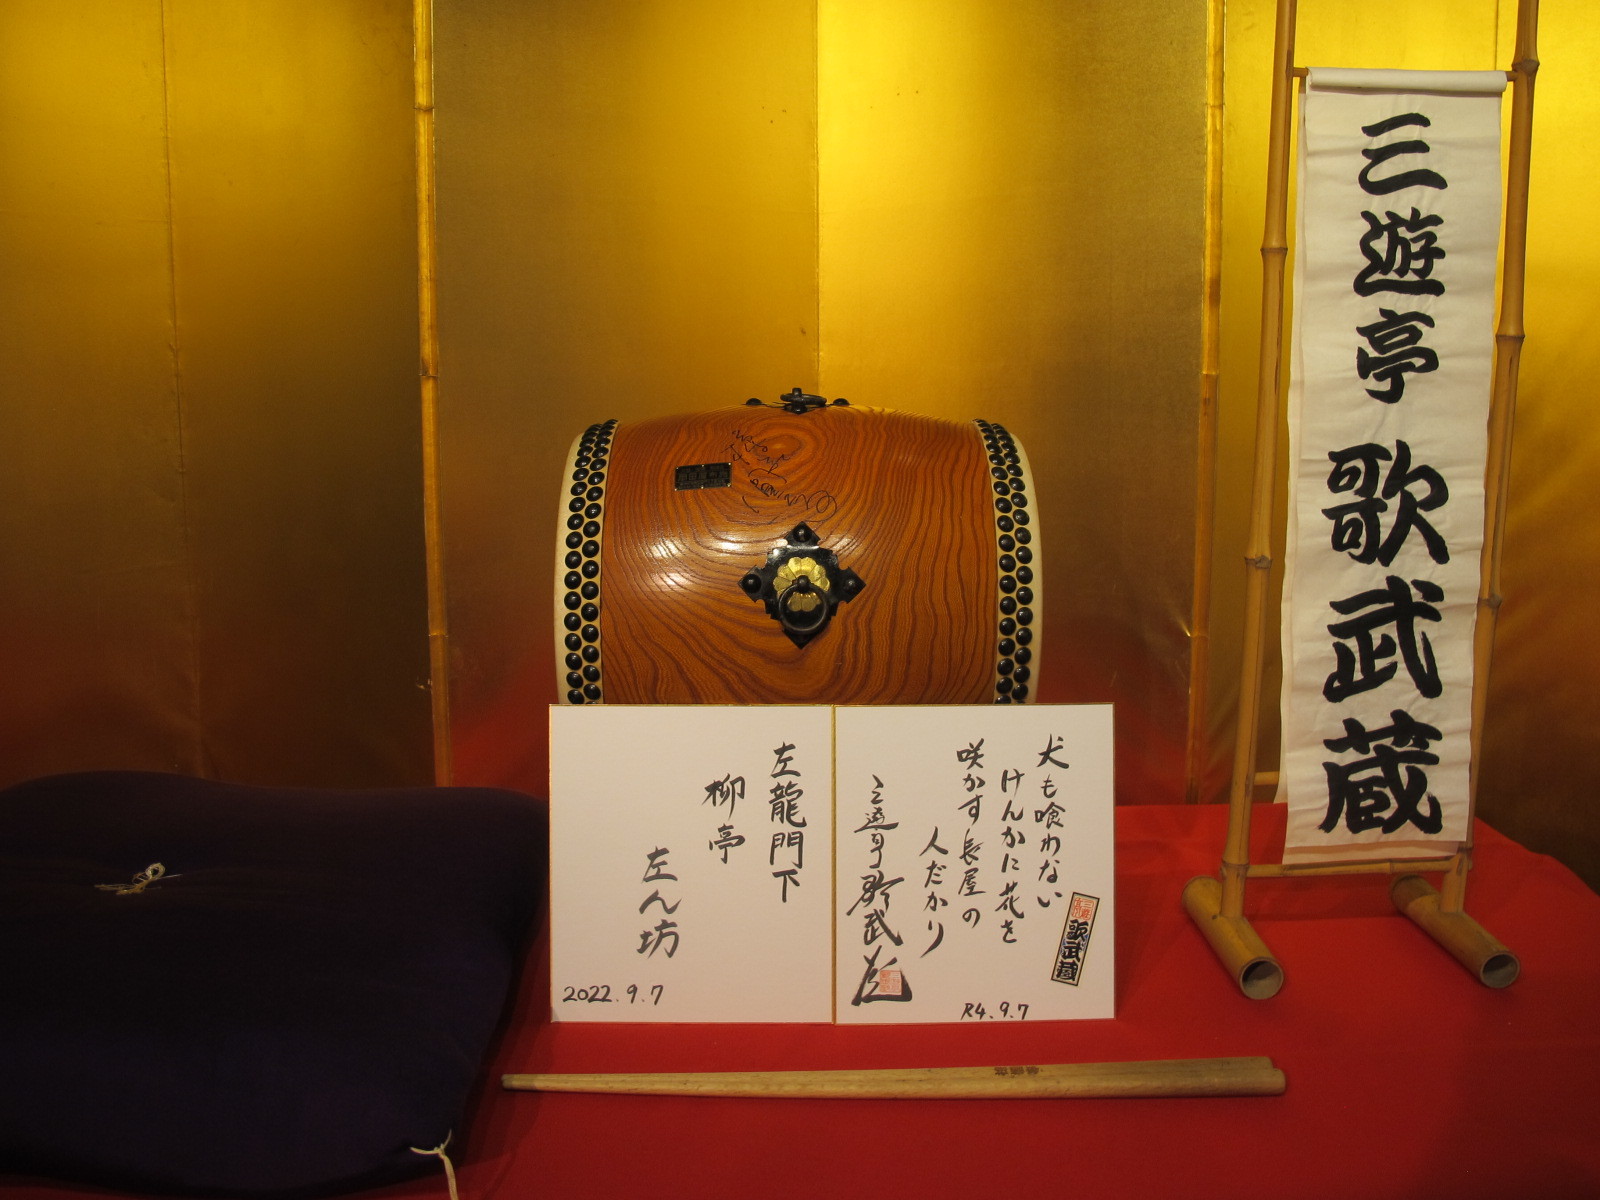 三遊亭 歌武蔵
犬も喰わない
けんかに花を
咲かす長屋の
人だかり
三遊亭歌武蔵
歌武蔵
R4.9.7
左龍門下
柳亭
左ん坊
2022.9.7